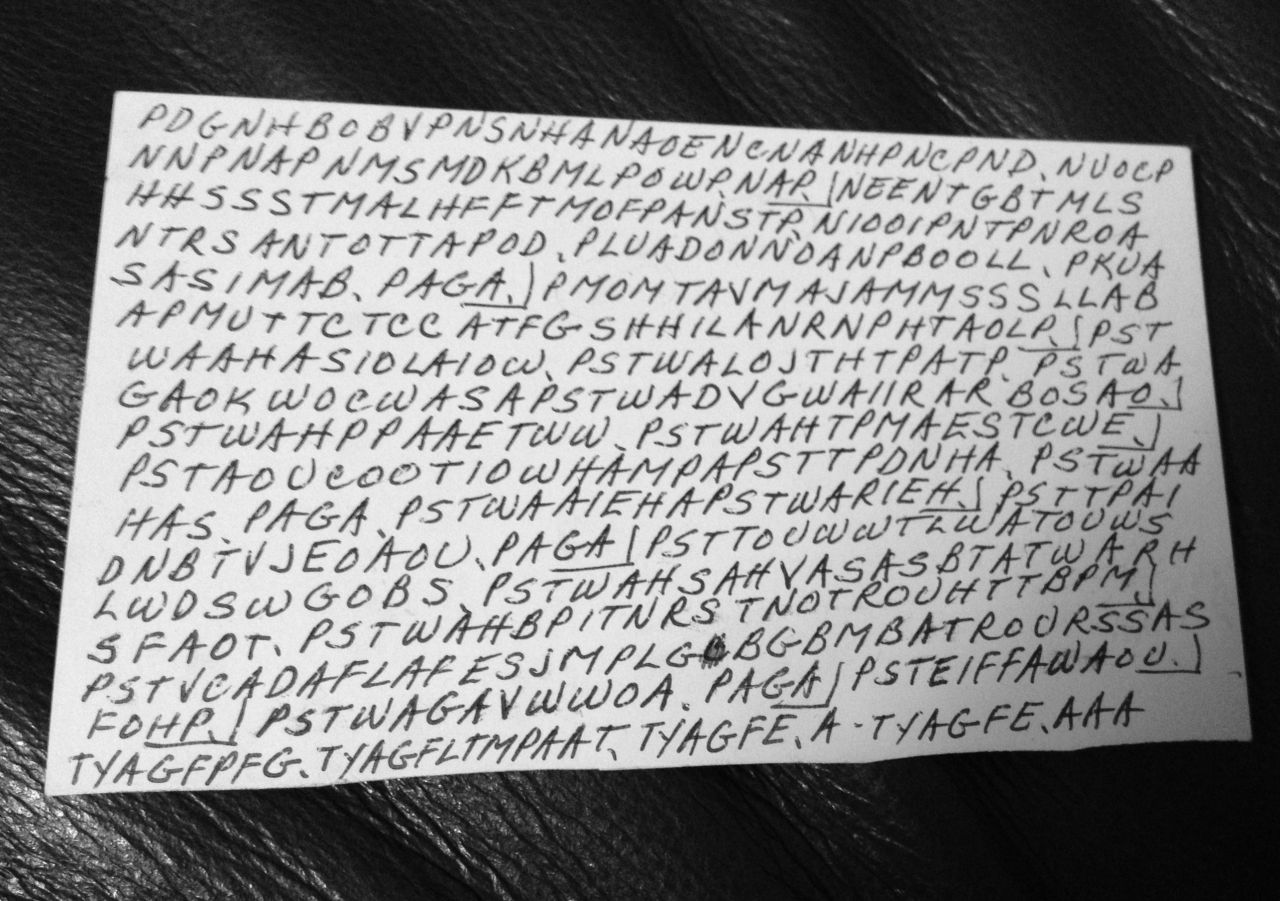 PDGNHBOBVPNSNHANAOENCNANHPNCPND. NUOCP
NNPNAPNMSMDKBMLPOWP.NAP.|NEENTGBTMLS
HHSSSTMALHFFTMOFPANSTP.NIOOIPNTPNROA
NTRSANTOTTAPOD. PLUADONNOANPBOOLL. PKUA
SASIMAB. PAGA.| PMOMTAVMAJAMMSSSLLAB
APMUTTCTCCATFGSHHILANRNPHTAOLP.|PST
WAAHASIOLAIOW. PSTWALOJTHTPATP. PSTWA
GAOKWOCWASAPSTWADVGWAIIRAR BOSAO.|
PSTWAHPPAAETWW. PSTWAHTPMAESTCWE.|
PSTAOUCOOTIOWHAMPAPSTTPDNHA. PSTWAA
HAS. PAGA. PSTWAAIEHAPSTWARIEH.| PSTTPAI
DNBTVJEOAOU. PAGA|PSTTOUWWTLWATOUWS
LWDSWGOBS. PSTWAHSAHVASASBTATWARH
SFAOT. PSTWAHBPITNRSTNOTROUHTTBPM|
PSTVCADAFLAFESJMPLG BGBMBATROURSSAS
FOHP.| PSTWAGAVWWOA. PAGA|PSTEIFFAWAOU.|
TYAGFPFG. TYAGFLTMPAAT. TYAGFE. A-TYAGFE.AAA